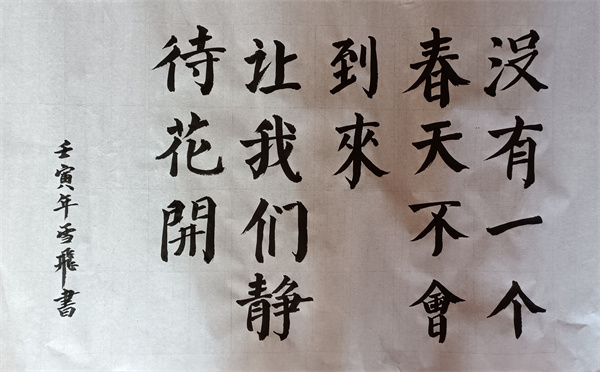 没有一个
春天不會
到來
让我们静
待花開
壬寅年雪飛書